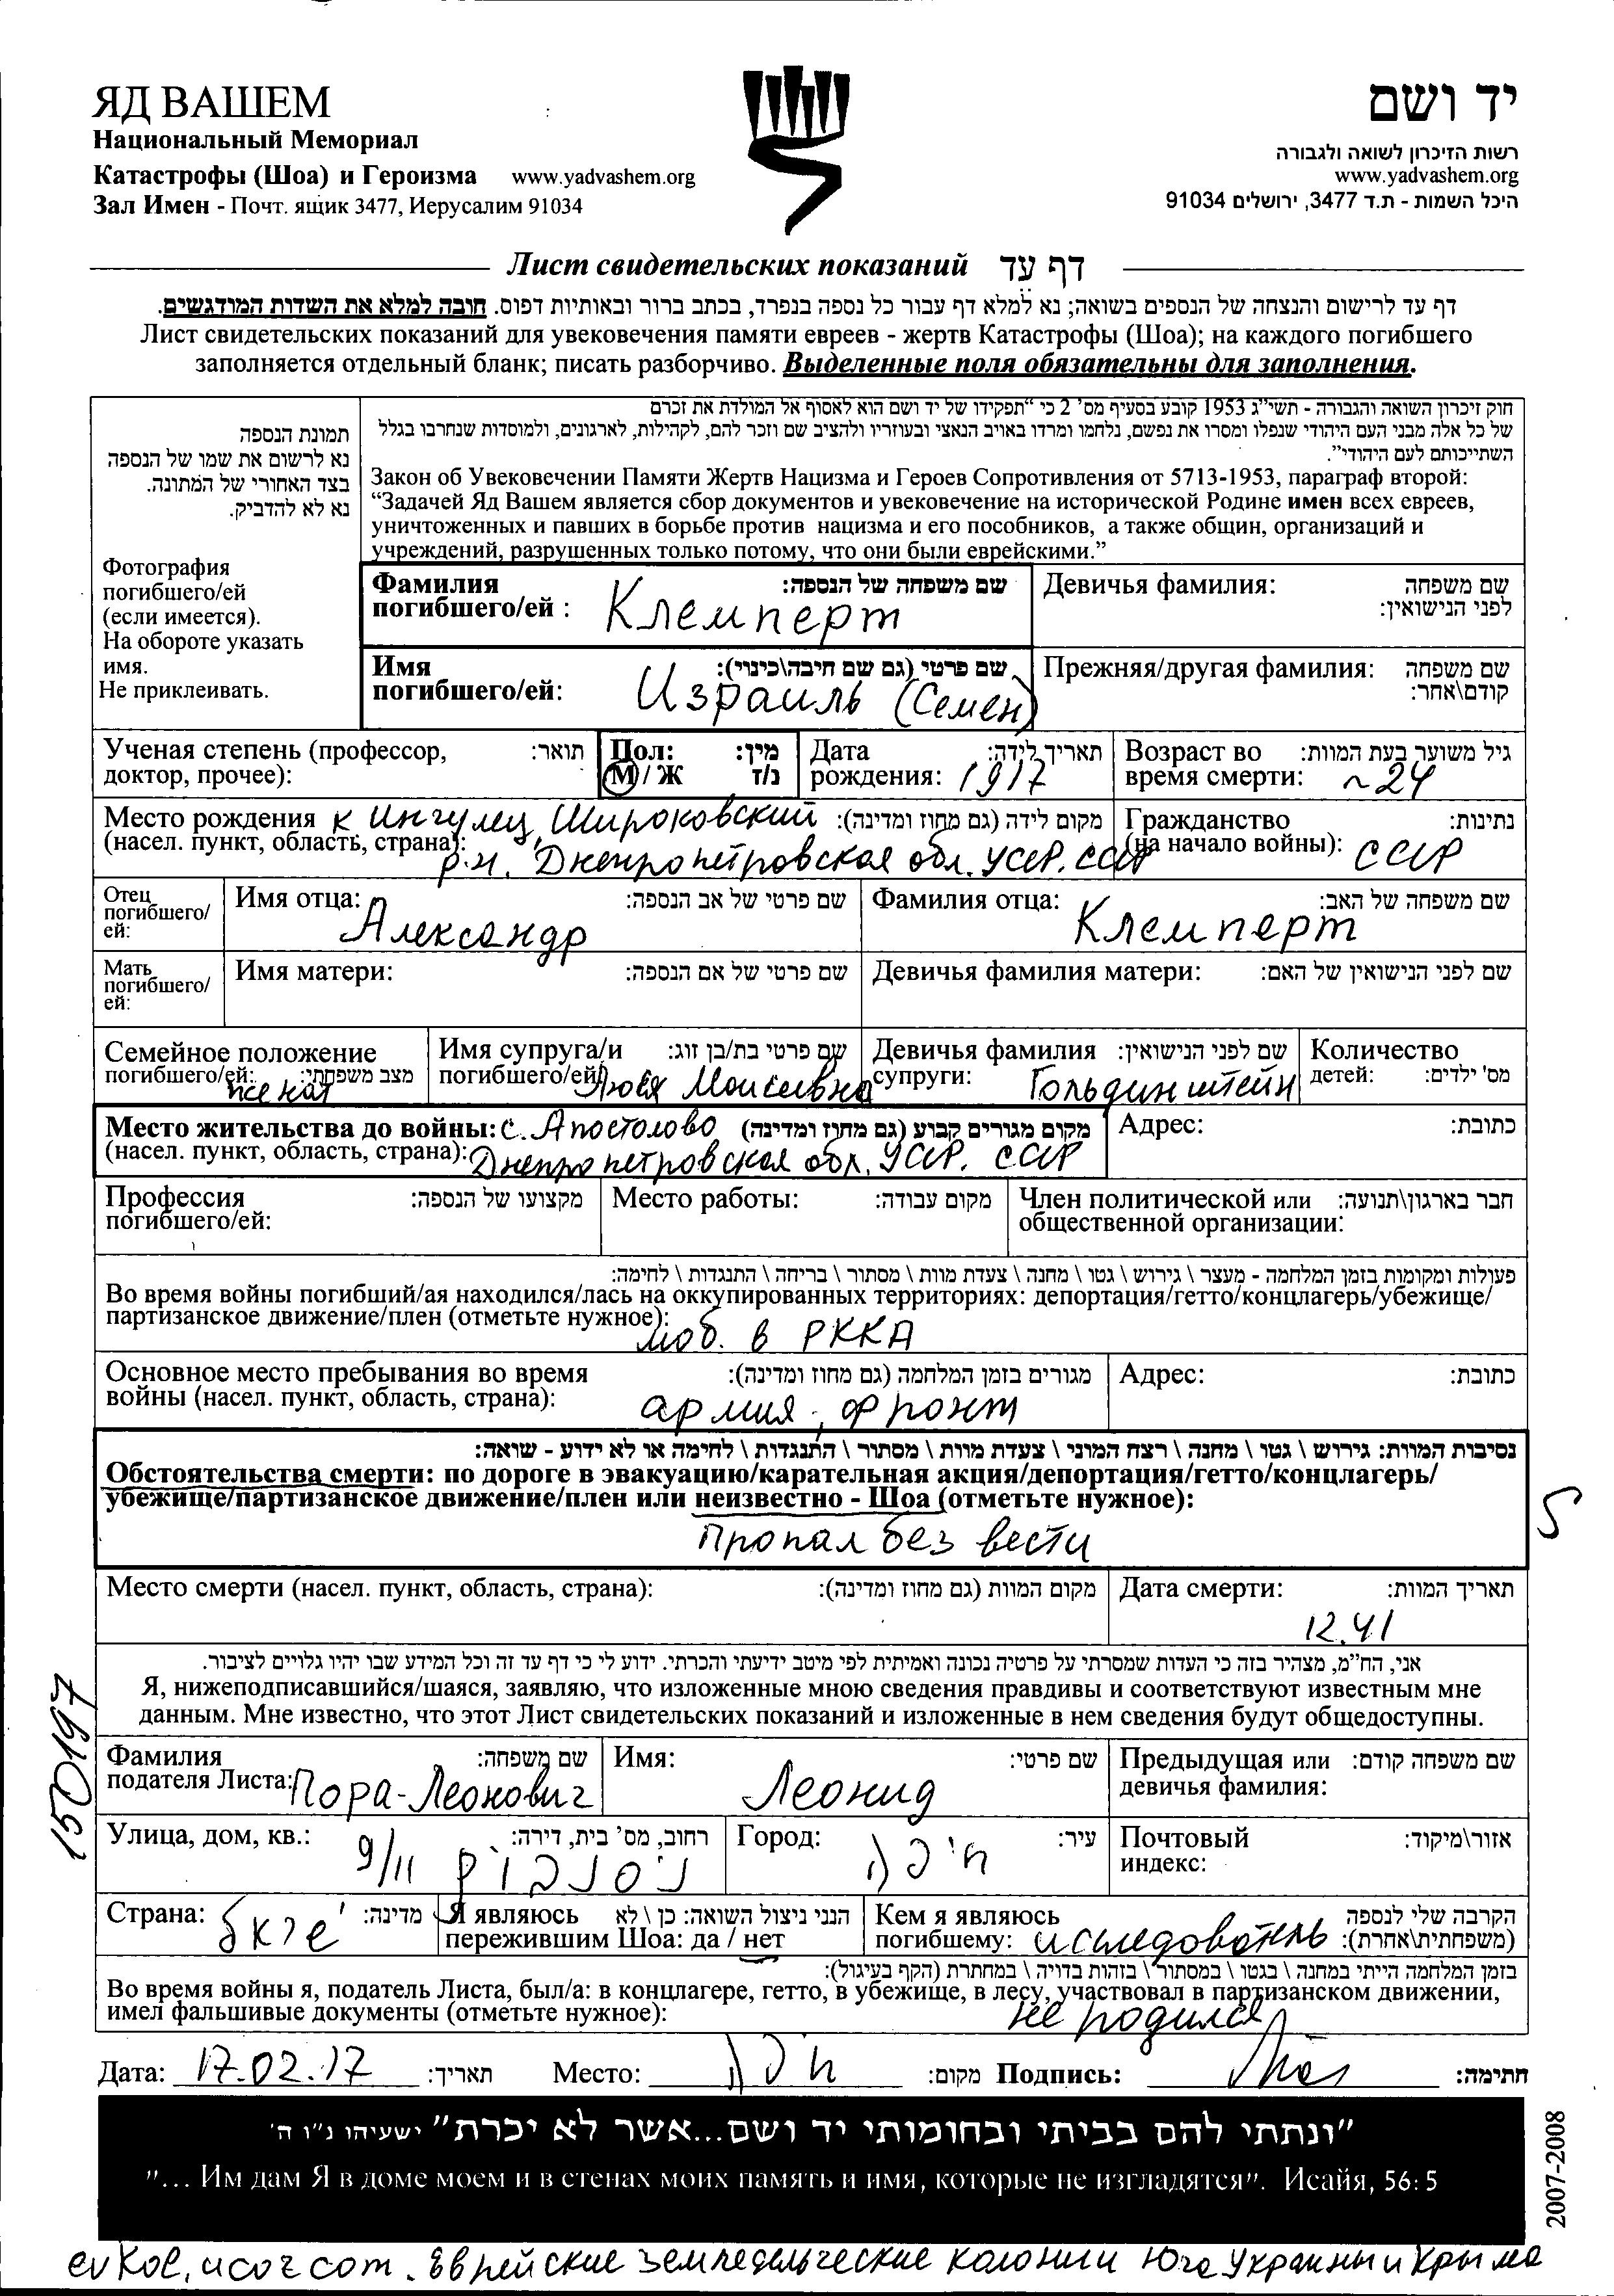 ЯД ВАШЕМ
Национальный Мемориал
Катастрофы (Шоа) и Героизма www.yadvashem.org
Зал Имен - Почт. ящик 3477, Иерусалим 91034
יד ושם
רשות הזיכרון לשואה ולגבורה
www.yadvashem.org
היכל השמות - ת.ד 3477, ירושלים 91034
Лист свидетельских показаний דף עד
דף עד לרישום והנצחה של הנספים בשואה; נא למלא דף עבור כל נספה בנפרד, בכתב ברור ובאותיות דפוס. חובה למלא את השדות המודגשים.
Лист свидетельских показаний для увековечения памяти евреев - жертв Катастрофы (Шоа); на каждого погибшего
заполняется отдельный бланк; писать разборчиво. Выделенные поля обязательны для заполнения.
תמונת הנספה
נא לרשום את שמו של הנספה
בצד האחורי של התמונה.
נא לא להדביק.
Фотография
погибшего/ей
(если имеется).
На обороте указать
имя.
Не приклеивать.
חוק זיכרון השואה והגבורה - תשי"ג 1953 קובע בסעיף מס' 2 כי "תפקידו של יד ושם הוא לאסוף אל המולדת את זכרם
של כל אלה מבני העם היהודי שנפלו ומסרו את נפשם, נלחמו ומרדו באויב הנאצי ובעוזריו ולהציב שם וזכר להם, לקהילות, לארגונים, ולמוסדות שנחרבו בגלל
השתייכותם לעם היהודי".
Закон об Увековечении Памяти Жертв Нацизма и Героев Сопротивления от 5713-1953, параграф второй:
“Задачей Яд Вашем является сбор документов и увековечение на исторической Родине имен всех евреев,
уничтоженных и павших в борьбе против нацизма и его пособников, а также общин, организаций и
учреждений, разрушенных только потому, что они были еврейскими.”
Фамилия שם משפחה של הנספה:
погибшего/ей : Клемперт
Девичья фамилия: שם משפחה
לפני הנישואין:
Имя שם פרטי (גם שם חיבה\כינוי):
погибшего/ей: Израиль (Семен)
Прежняя/другая фамилия: שם משפחה
קודם\אחר:
Ученая степень (профессор, תואר:
доктор, прочее):
Пол: מין:
М / Ж נ/ז
Дата תאריך לידה:
рождения: 1917
Возраст во גיל משוער בעת המוות:
время смерти: ~24
Место рождения к Ингулец, Широковский מקום לידה (גם מחוז ומדינה):
(насел. пункт, область, страна): р-н. Днепропетровская обл. УССР. СССР
Гражданство נתינות:
(на начало войны): СССР
Отец
погибшего/
ей:
Имя отца: שם פרטי של אב הנספה:
Александр
Фамилия отца: שם משפחה של האב:
Клемперт
Мать
погибшего/
ей:
Имя матери: שם פרטי של אם הנספה:
Девичья фамилия матери: שם לפני הנישואין של האם:
Семейное положение
погибшего/ей: מצב משפחתי:
женат
Имя супруга/и שם פרטי בת/בן זוג:
погибшего/ей Моисеевна
Девичья фамилия שם לפני הנישואין:
супруги: Гольдинштейн
Количество
детей: מס' ילדים:
Место жительства до войны: с. Апостолово מקום מגורים קבוע (גם מחוז ומדינה)
(насел. пункт, область, страна): Днепропетровская обл. УССР. СССР
Адрес: כתובת:
Профессия מקצועו של הנספה:
погибшего/ей:
Место работы: מקום עבודה:
Член политической или חבר בארגון\תנועה:
общественной организации:
פעולות ומקומות בזמן המלחמה - מעצר \ גירוש \ גטו \ מחנה \ צעדת מוות \ מסתור \ בריחה \ התנגדות \ לחימה:
Во время войны погибший/ая находился/лась на оккупированных территориях: депортация/гетто/концлагерь/убежище/
партизанское движение/плен (отметьте нужное):
моб. в РККА
Основное место пребывания во время מגורים בזמן המלחמה (גם מחוז ומדינה):
войны (насел. пункт, область, страна): армия, фронт
Адрес: כתובת:
נסיבות המוות: גירוש \ גטו \ מחנה \ רצח המוני \ צעדת מוות \ מסתור \ התנגדות \ לחימה או לא ידוע - שואה:
Обстоятельства смерти: по дороге в эвакуацию/карательная акция/депортация/гетто/концлагерь/
убежище/партизанское движение/плен или неизвестно - Шоа (отметьте нужное):
Пропал без вести
5
Место смерти (насел. пункт, область, страна): מקום המוות (גם מחוז ומדינה):
Дата смерти: תאריך המוות:
12.41
אני, הח"מ, מצהיר בזה כי העדות שמסרתי על פרטיה נכונה ואמיתית לפי מיטב ידיעתי והכרתי. ידוע לי כי דף עד זה וכל המידע שבו יהיו גלויים לציבור.
Я, нижеподписавшийся/шаяся, заявляю, что изложенные мною сведения правдивы и соответствуют известным мне
данным. Мне известно, что этот Лист свидетельских показаний и изложенные в нем сведения будут общедоступны.
150197
Фамилия שם משפחה:
подателя Листа: Пора-Леонович
Имя: שם פרטי:
Леонид
Предыдущая или שם משפחה קודם:
девичья фамилия:
Улица, дом, кв.: רחוב, מס' בית, דירה:
9/11
Город: עיר:
חיפה
Почтовый אזור\מיקוד:
индекс:
Страна: מדינה:
ישראל
Я являюсь הנני ניצול השואה: כן \ לא
пережившим Шоа: да / нет
Кем я являюсь הקרבה שלי לנספה
погибшему: исследователь (משפחתית\אחרת):
בזמן המלחמה הייתי במחנה \ בגטו \ במסתור \ בזהות בדויה \ במחתרת (הקף בעיגול):
Во время войны я, податель Листа, был/а: в концлагере, гетто, в убежище, в лесу, участвовал в партизанском движении,
имел фальшивые документы (отметьте нужное): не родился
Дата: 17.02.17 תאריך: Место: חיפה מקום: Подпись: חתימה:
"ונתתי להם בביתי ובחומותי יד ושם...אשר לא יכרת" ישעיהו נ"ו ה'
"... Им дам Я в доме моем и в стенах моих память и имя, которые не изгладятся". Исайя, 56:5
2007-2008
evkol.ucoz.com. Еврейские земледельческие колонии Юга Украины и Крыма